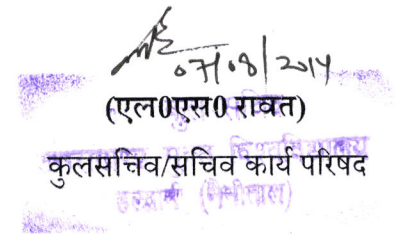 07/08/2014
(एल0एस0 रावत)
कुलसचिव/सचिव कार्य परिषद